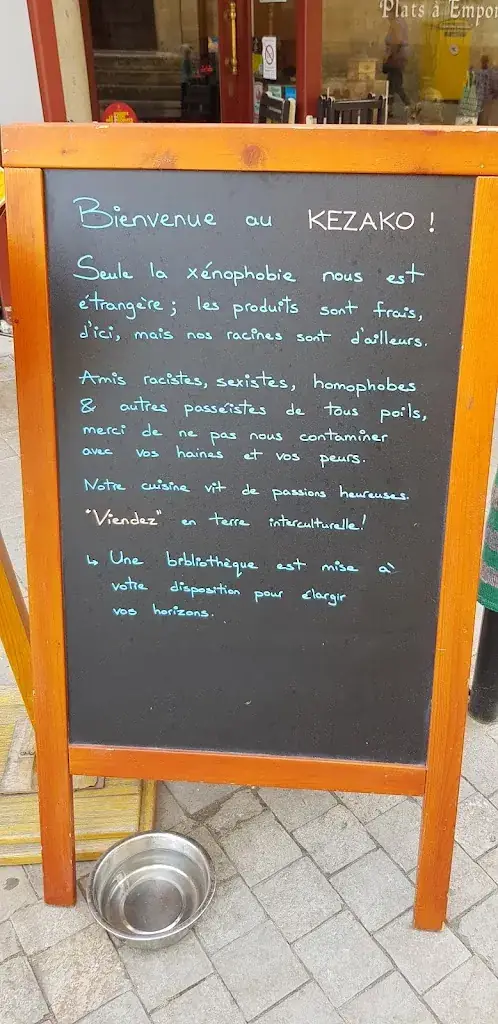 Plats à Empor
Bienvenue au KEZAKO !
Seule la xénophobie nous est
étrangère ; les produits sont frais,
d'ici, mais nos racines sont d'ailleurs.
Amis racistes, sexistes, homophobes
& autres passéistes de tous poils,
merci de ne pas nous contaminer
avec vos haines et vos peurs.
Notre cuisine vit de passions heureuses.
"Viendez" en terre interculturelle !
↳ Une bibliothèque est mise à
votre disposition pour élargir
vos horizons.